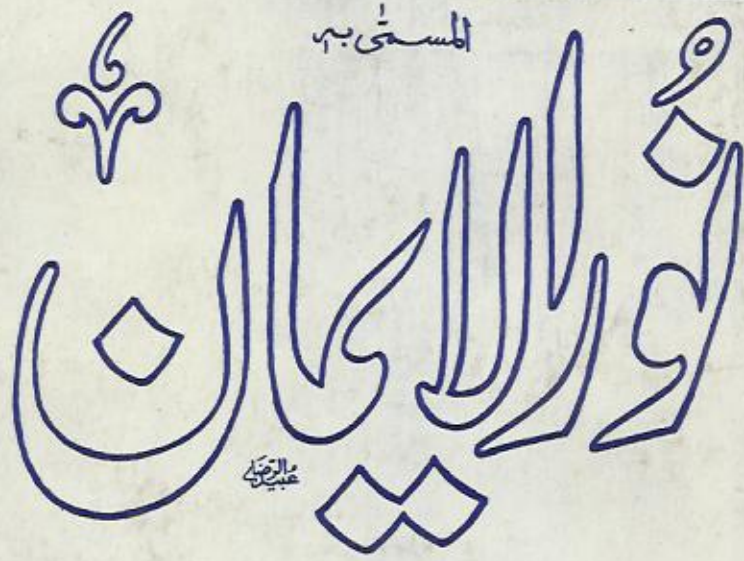 المسمّٰی بہ
نُورالایمان
عبیدالرضا